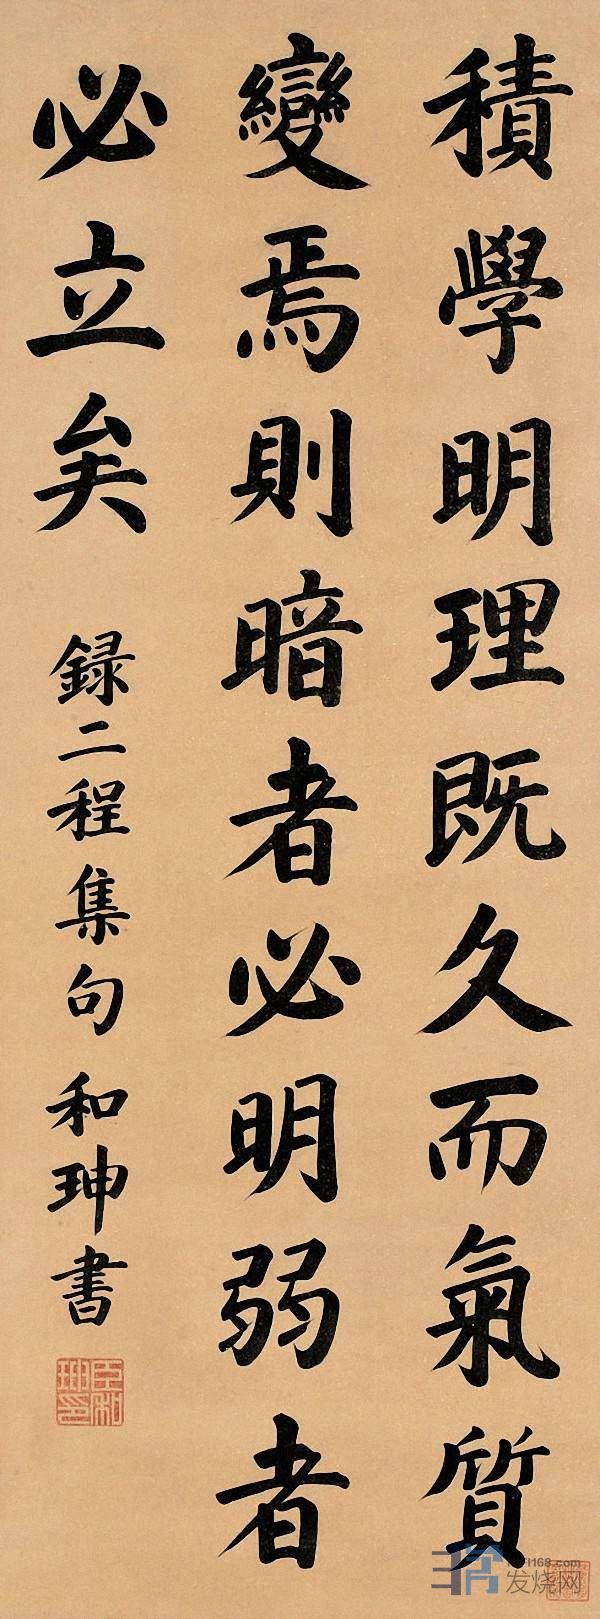 積學明理既久而氣質
變焉則暗者必明弱者
必立矣
録二程集句 和珅書
臣和珅印
发烧网